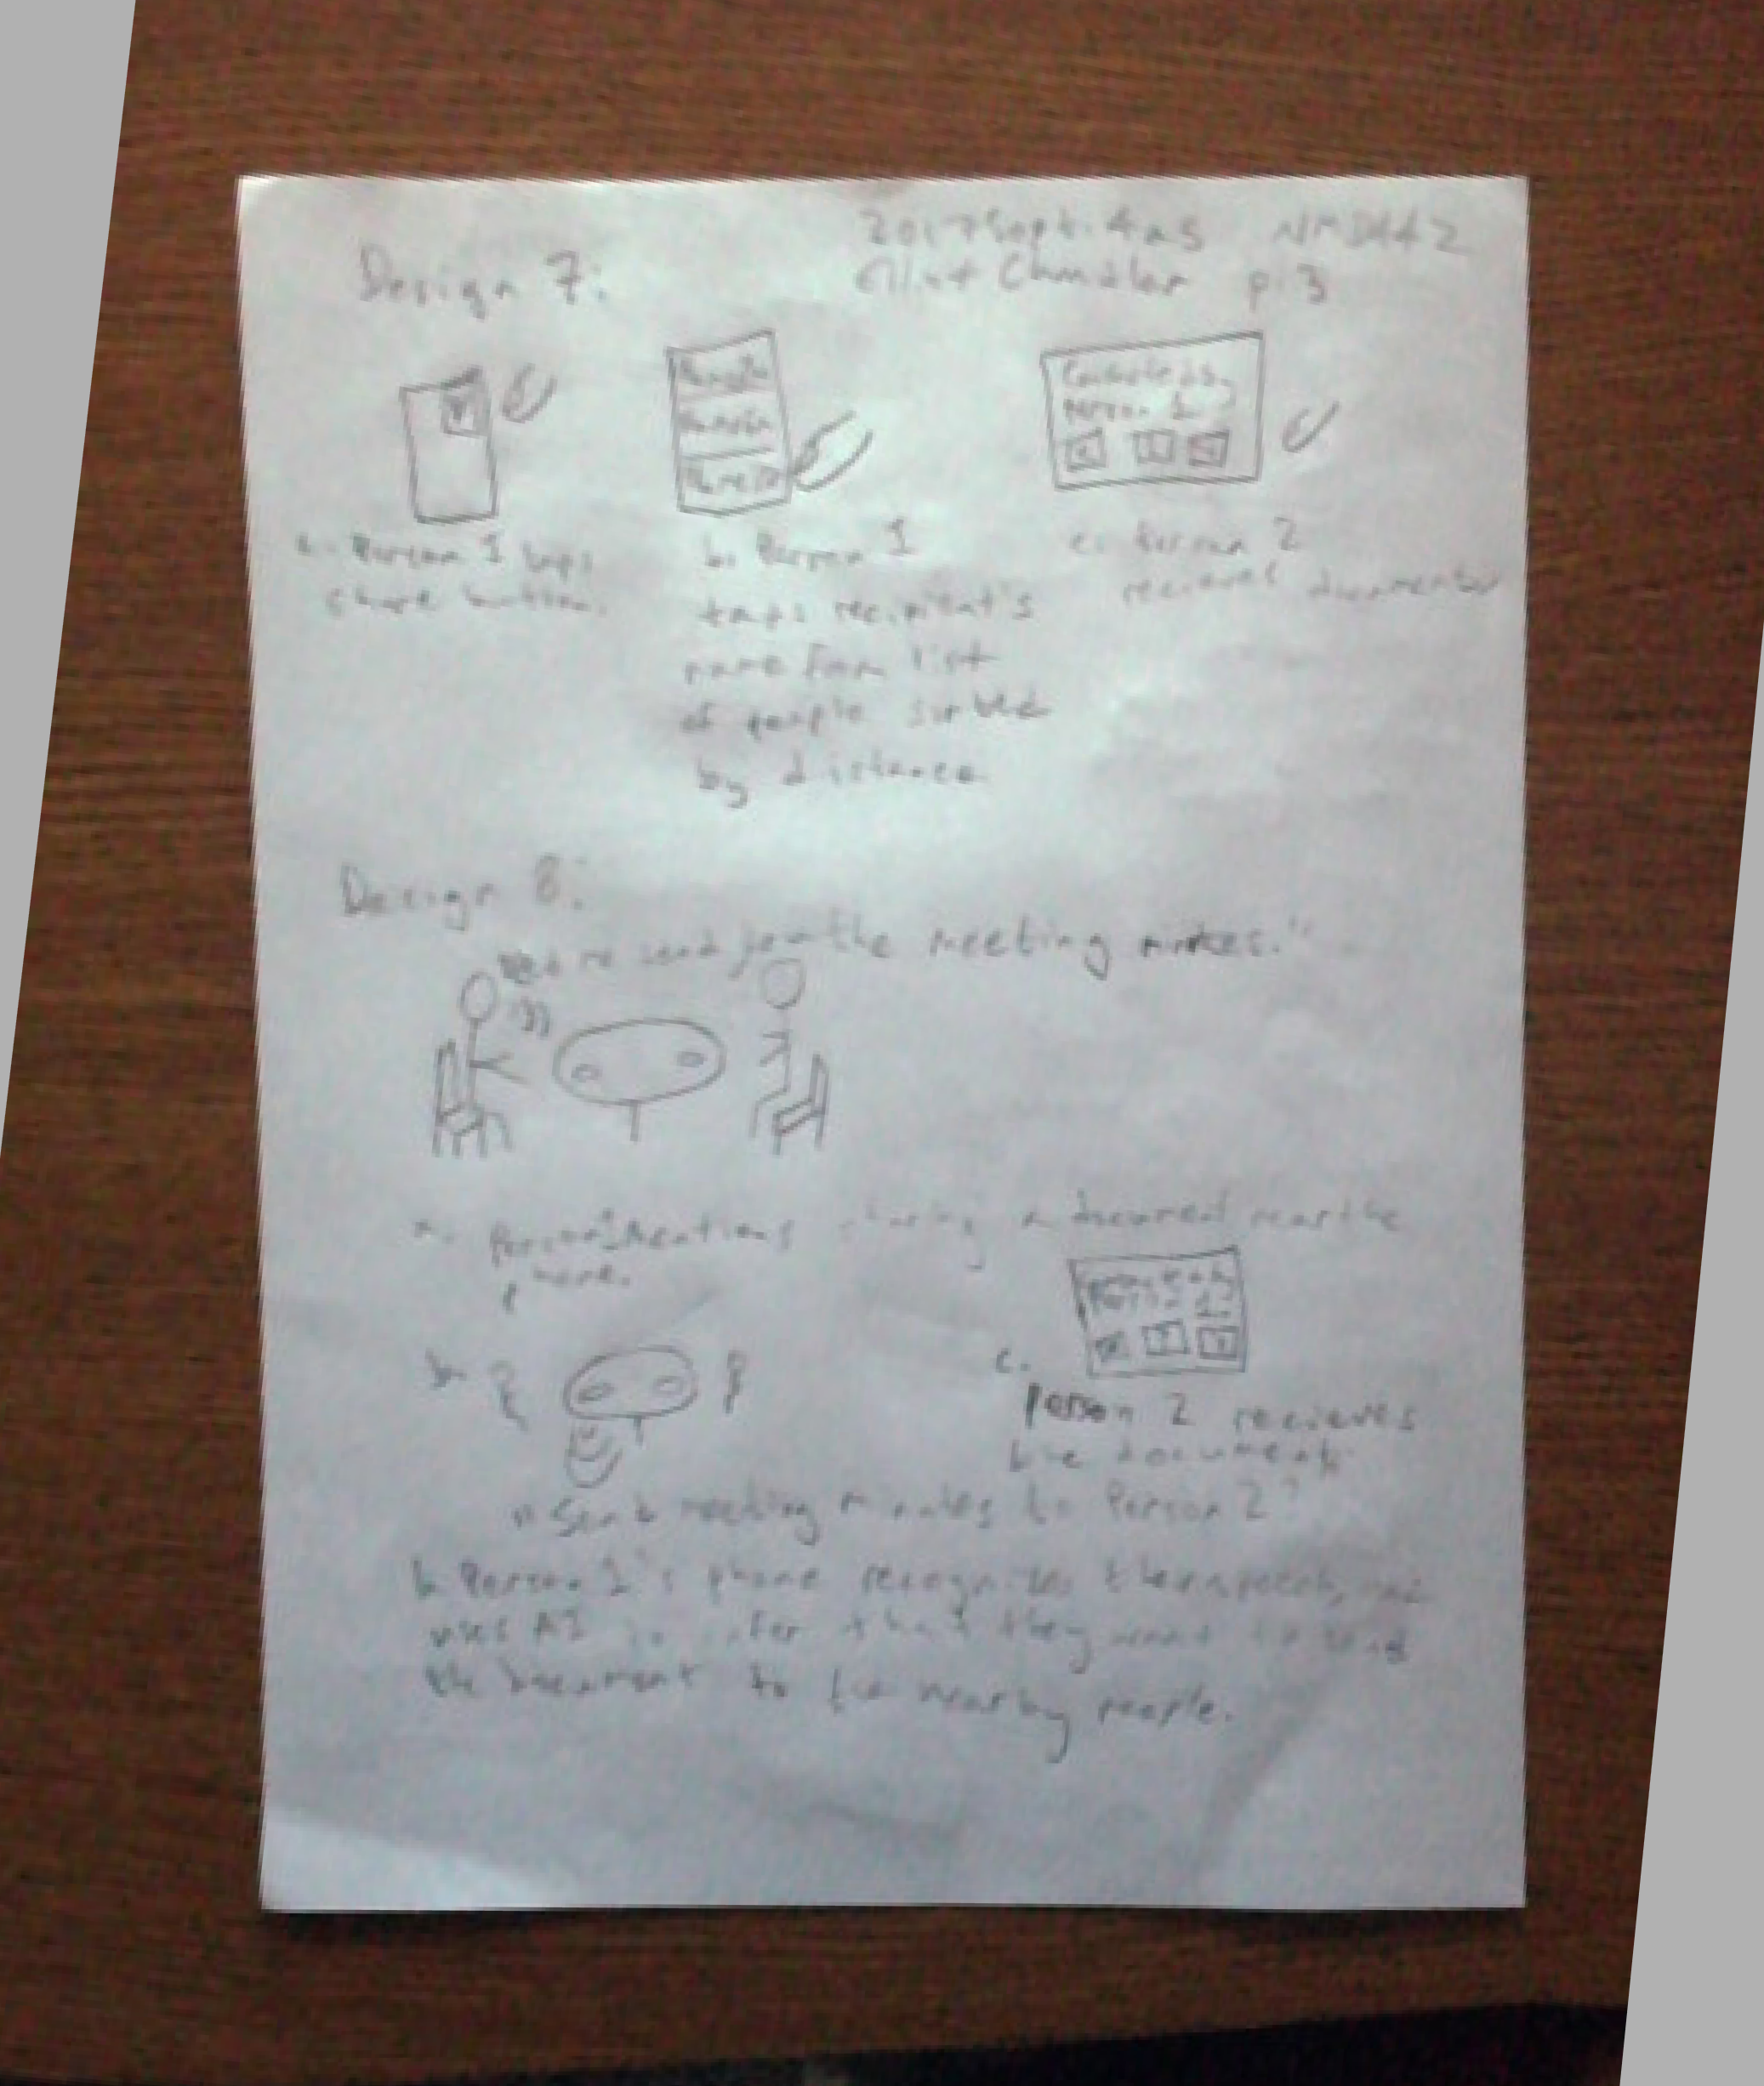 2017 Sept. 4 as NMD442
Clint Chandler p. 3
Design 7:
Person 1
Person 1 taps
share button.
b. Person 1
taps recipitent's
name from list
of people sorted
by distance
c. Person 2
recieves documents
Design 8:
Let me send you the meeting minutes."
a. Person 1 mentions sharing a document near the
phone.
b.
c.
Person 2 recieves
the document.
"Send meeting minutes to Person 2?
b. Person 1's phone recognizes their speech, and
uses AI to infer that they want to send
the document to the nearby people.